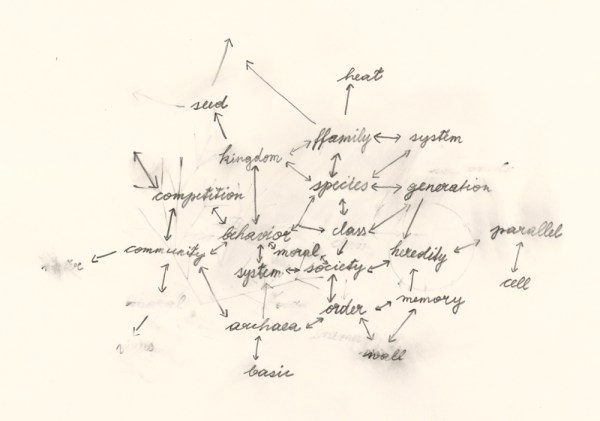 heat
seed
ffamily system
kingdom
species generation
competition
behavior class parallel
community moral heredity
system society
cell
order memory
archaea
wall
basic